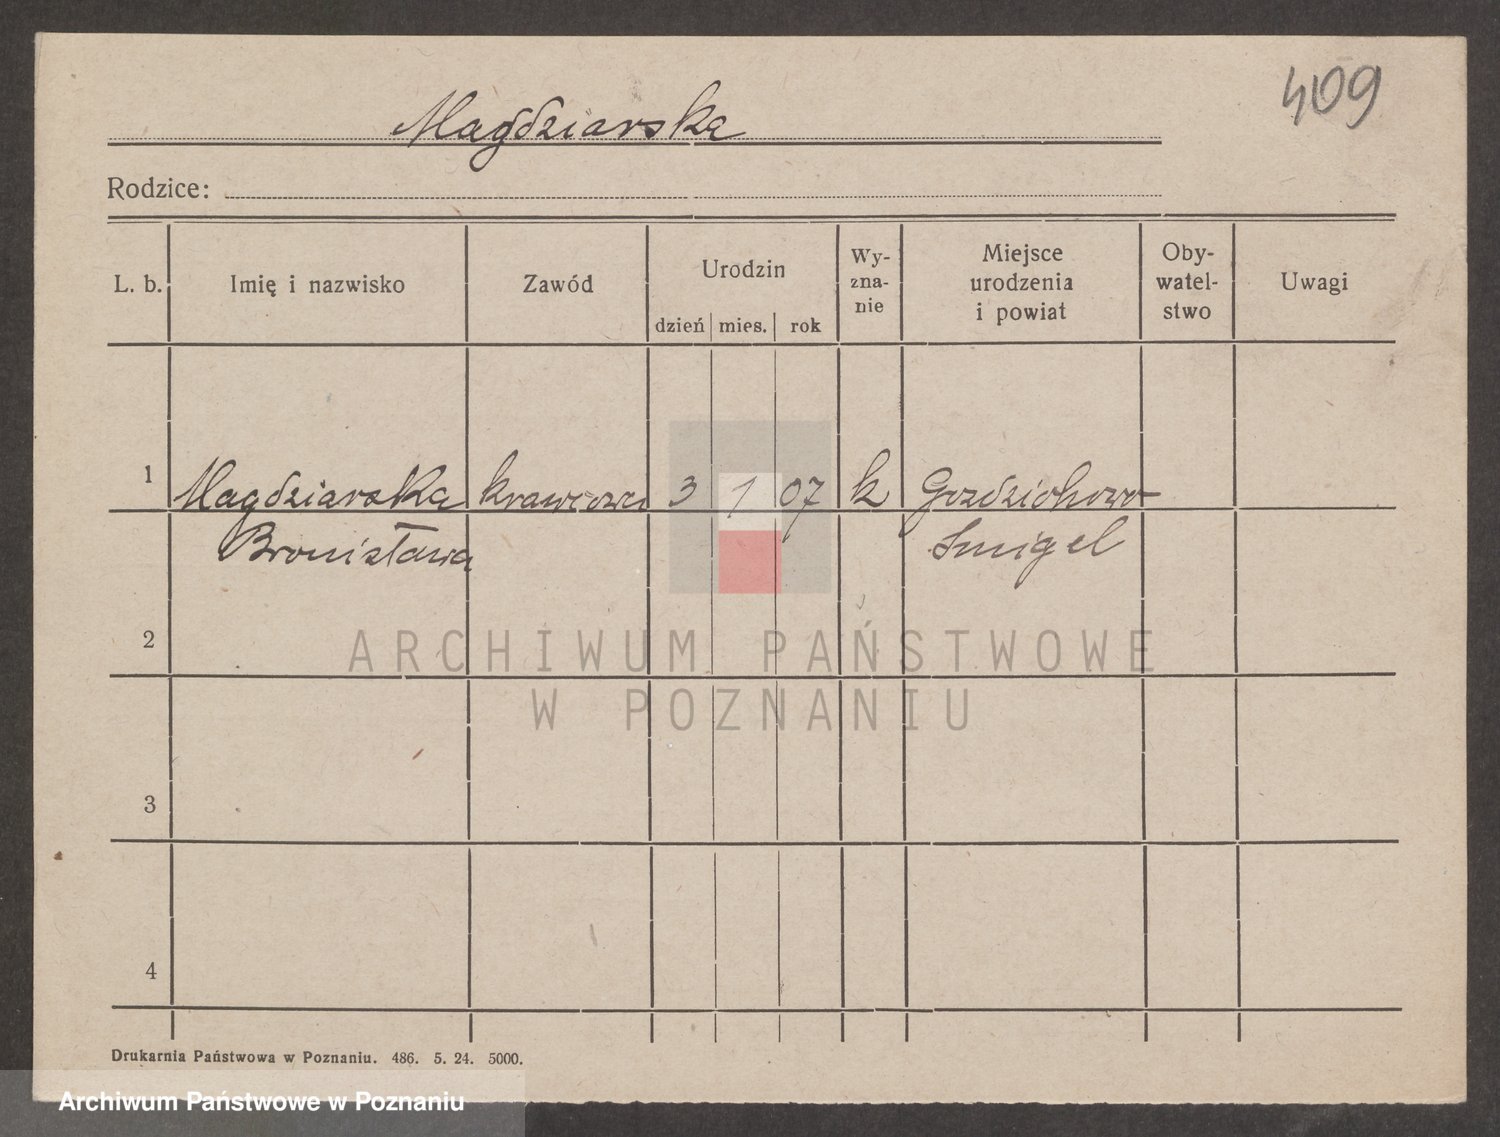 409
Magdziarska
Rodzice:
L. b.
Imię i nazwisko
Zawód
Urodzin
dzień
mies.
rok
Wy-
zna-
nie
Miejsce
urodzenia
i powiat
Oby-
watel-
stwo
Uwagi
1
Magdziarska
Bronisława
krawcowa
3
1
07
k
Gozdzichowo
Smigel
2
ARCHIWUM PAŃSTWOWE
W POZNANIU
3
4
Drukarnia Państwowa w Poznaniu. 486. 5. 24. 5000.
Archiwum Państwowe w Poznaniu